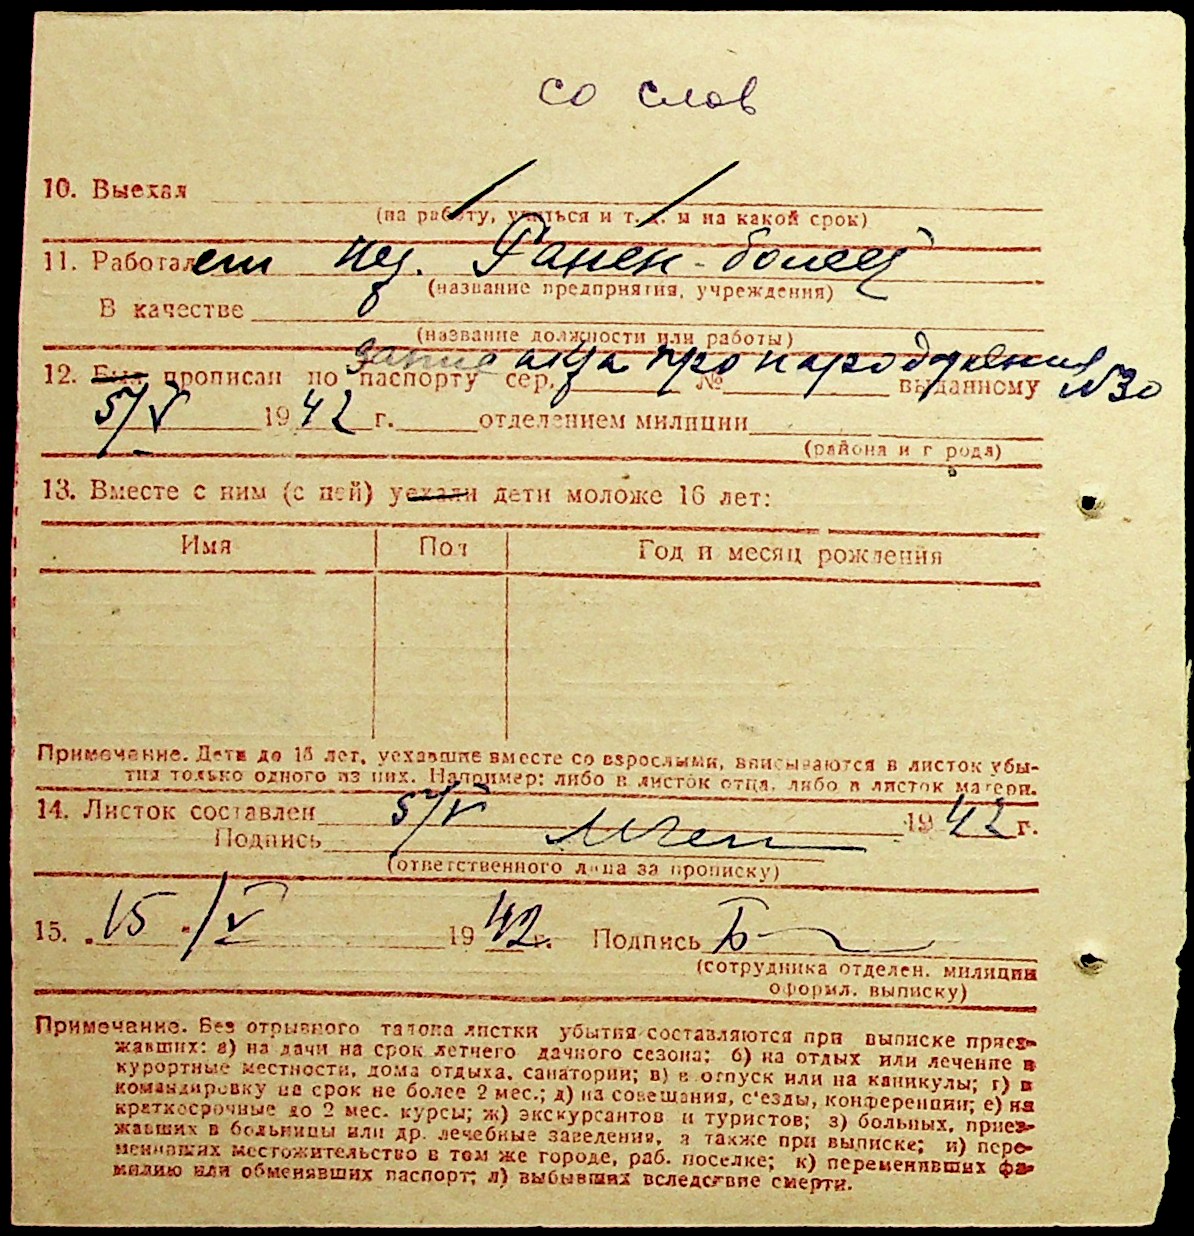 со слов
10. Выехал
(на работу, учиться и т. д. и на какой срок)
11. Работает
(название предприятия, учреждения)
В качестве
(название должности или работы)
запис акта про народження №30
12. Был прописан по паспорту сер. № выданному
5/V 1942 г. отделением милиции
(района и города)
13. Вместе с ним (с ней) уехали дети моложе 16 лет:
Имя Пол Год и месяц рождения
Примечание. Дети до 16 лет, уехавшие вместе со взрослыми, вписываются в листок убы-
тия только одного из них. Например: либо в листок отца, либо в листок матери.
14. Листок составлен 5/V 1942 г.
Подпись
(ответственного лица за прописку)
15. 15/V 1942 г. Подпись
(сотрудника отделен. милиции
оформл. выписку)
Примечание. Без отрывного талона листки убытия составляются при выписке приез-
жавших: а) на дачи на срок летнего дачного сезона; б) на отдых или лечение в
курортные местности, дома отдыха, санатории; в) в отпуск или на каникулы; г) в
командировку на срок не более 2 мес.; д) на совещания, с'езды, конференции; е) на
краткосрочные до 2 мес. курсы; ж) экскурсантов и туристов; з) больных, приез-
жавших в больницы или др. лечебные заведения, а также при выписке; и) пере-
менивших местожительство в том же городе, раб. поселке; к) переменивших фа-
милию или обменявших паспорт; л) выбывших вследствие смерти.